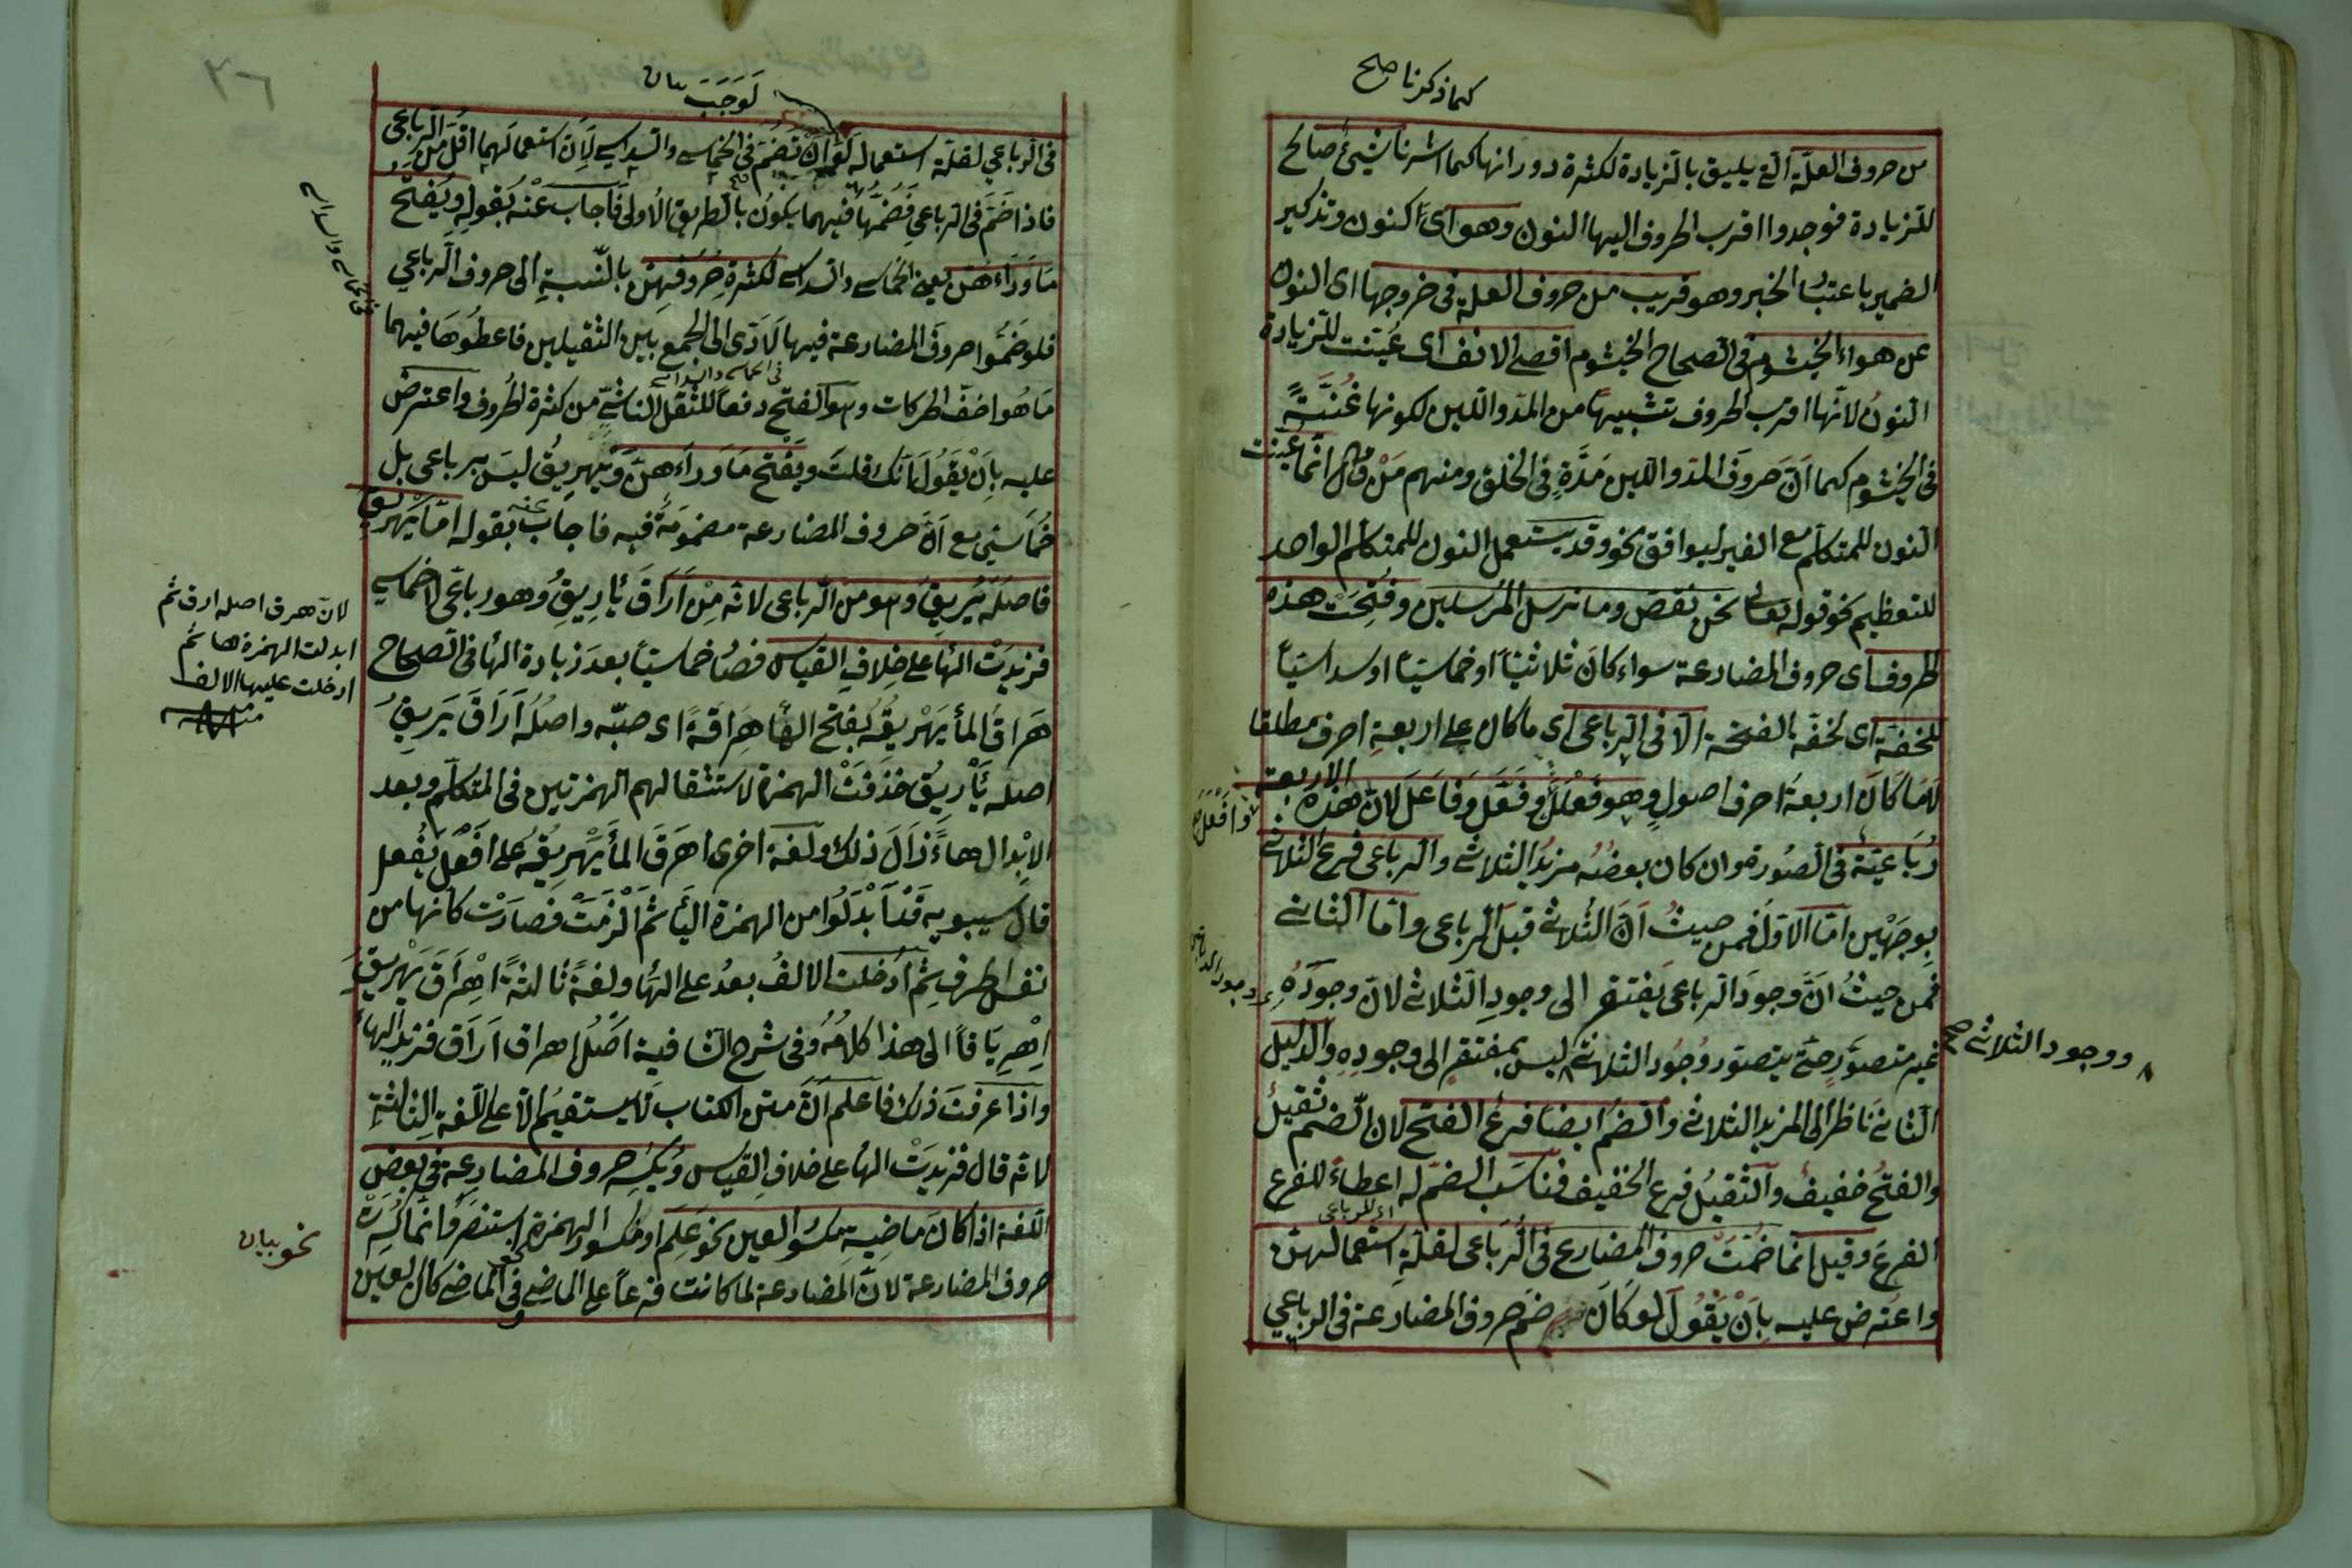 كما ذكرنا صح
من حروف العلّة التي يليق بالزيادة لكثرة دورانها كما اشرنا شيئ صالح
للزيادة فوجدوا اقرب الحروف اليها النون وهو اى اكنون وتذكير
الضمير باعتبا الخبر وهو قريب من حروف العلة فى خروجها اى النون
عن هواء الخيشوم فى الصحاح الخيشوم اقصى الانف اى عُيّنت للزيادة
النونُ لانّها اقرب الحروف تشبيهاً من المدّ واللين لكونها غُنَّةً
فى الخيشوم كما انّ حروفَ المدّ واللين مَدَّةٍ فى الحلق ومنهم مَنْ قال انّما عيّنت
النون للمتكلم مع الغير ليوافق نحن وقد يستعمل النون للمتكلم الواحد
للتعظيم نحو قوله تعالى نحن نقصّ وما نرسل المرسلين وفُتِحَتْ هذه
الحروف اى حروف المضارعة سواء كان ثلاثيّاً او خماسيّاً او سداسيّاً
للخفّة اى لخفّه بالفتحة الا فى الرباعى اى ما كان على اربعةِ احرف مطلقا
لَا مَا كَانَ اربعةُ احرف اصولٍ وهو فَعْلَلَ وفَعَّلَ وفَاعَلَ لانّ هذه الاربعة
وافْعَلَ صح
رُبَاعيّة فى الصُورة وان كان بعضُه مزيدُ الثلاثى والرباعى فرع الثلاثى
بوجهَيْن امّا الاوّل فمن حيثُ اَنّ الثُلاثى قبل الرباعى وامّا الثانى
فمن حيثُ انَّ وجودَ الرباعى يَفتقر الى وجودِ الثلاثى لانّ وجودَهُ
غير متصوّر حتى يتصوّر وجُود الثلاثى ليس بمفتقرٍ الى وجودِهِ والدليل
ووجود الثلاثى صح
الثانى ناظر الى المزيد الثلاثى والضمُ ايضا فرعُ الفتح لان الضم ثقيلٌ
والفتحُ خفيفٌ والثقيلُ فرع الخفيف فناسَبَ الضمّ له اعطاءً للفرع
اى للرباعى
الفرعَ وقيل انما ضُمّتْ حروف المضارع فى الرّباعى لقلّةِ استعمالهنّ
واعترض عليه بِاَنْ يَقُولَ لو كَانَ ضمّ حروف المضارعة فى الرباعي
٢٦
لَوَجَبَ بيان
فى الرباعي لقلّة استعماله لَوَجَبَ اَنْ تُضَمّ فى الخماسى والسداسى لِاَنّ استعمالهما اقلّ من الرباعى
فاذا ضَمّ فى الرباعى فَضَمُّهَا فيهما يكونُ بالطريق الاولى فَاَجابَ عنه بقولِهِ ويُفتَحُ
مَا وَرَاءَهُنّ يعنى الخماسى والسداسى لكثرةِ حُرُوفهِنّ بالنّسبةِ الى حروف الرباعي
فلو ضَمّوا حروفَ المضارعة فيها لَاَدّى الى الجمع بَين الثقيلين فاعطُوهَا فيهما
فى الخماسى والسداسى
مَا هُو اخفّ الحركات وهو الفتح دفعاً للثقل الناشىّ من كثرة الحُروف واعترض
عليه بِاَنْ يَقُولَ اَنّك قلتَ ويُفْتح مَا وَرَاءَهُنّ وَيُهْرِيقُ ليسَ برباعى بل
خُماسىّ مع اَنّ حروف المضارعة مضمومَةٌ فيه فاجاب عنه بقوله امّا يُهْرِيقُ
فاصلُه يُرِيقُ وهو من الرباعى لانّه مِنْ اَرَاقَ يُأرِيقُ وهو رباعى لا خماسى
فزيدَتْ الهاءُ على خِلافِ القياس فصار خماسيّاً بعدَ زيادة الهاء فى الصحاح
هَرَاقَ المأ يُهَرْيِقُه بفتح الهاء هِرَاقَةً اى صبّه واصلُه اَرَاقَ يُرِيقُ
اصله يُأَرِيقُ حُذِفَتْ الهمزة لاستثقالهم الهمزتين فى المتكلّم وبعد
الابْدال هاءً زَالَ ذلك ولغة اخرى اهرَقَ المأ يُهْرِيقُه على اَفْعلَ يُفْعل
قال سيبويه قَدْ اَبْدَلُوا من الهمزة الهاء ثم اَلْزِمَتْ فصارَتْ كانّها من
نفس الحرف ثم ادُخلت الالفُ بعدُ على الهاء ولغةٌ ثالثةٌ اِهْرَاقَ يُهْرِيقُ
اِهْرِيَاقاً الى هذا كلامُه وفى شرح الشافية اَصْلُ اهراق اَرَاق فزيد الهاء
واذا عرفتَ ذلك فاعلم اَنّ متن الكتاب لا يستقيمُ الّا على اللّغة الثالثةِ
لانّه قال فزيدَتْ الهاُ على خلافِ القياس ويُكسَر حروف المضارعة فى بعض
اللّغة اذا كانَ ماضِيه مكسور العين نحو عَلِمَ او مكسور الهمزة نحو استنصَرَ وانّما كُسِرَتْ
حروف المضارعة لانّ المضارعة لما كانت فرعاً على الماضى وفى الماضى كان العين
لانّ هرق اصله ارق ثم
ابدلت الهمزة هاء ثم
ادخلت عليها الالف
منه
نحو بيان